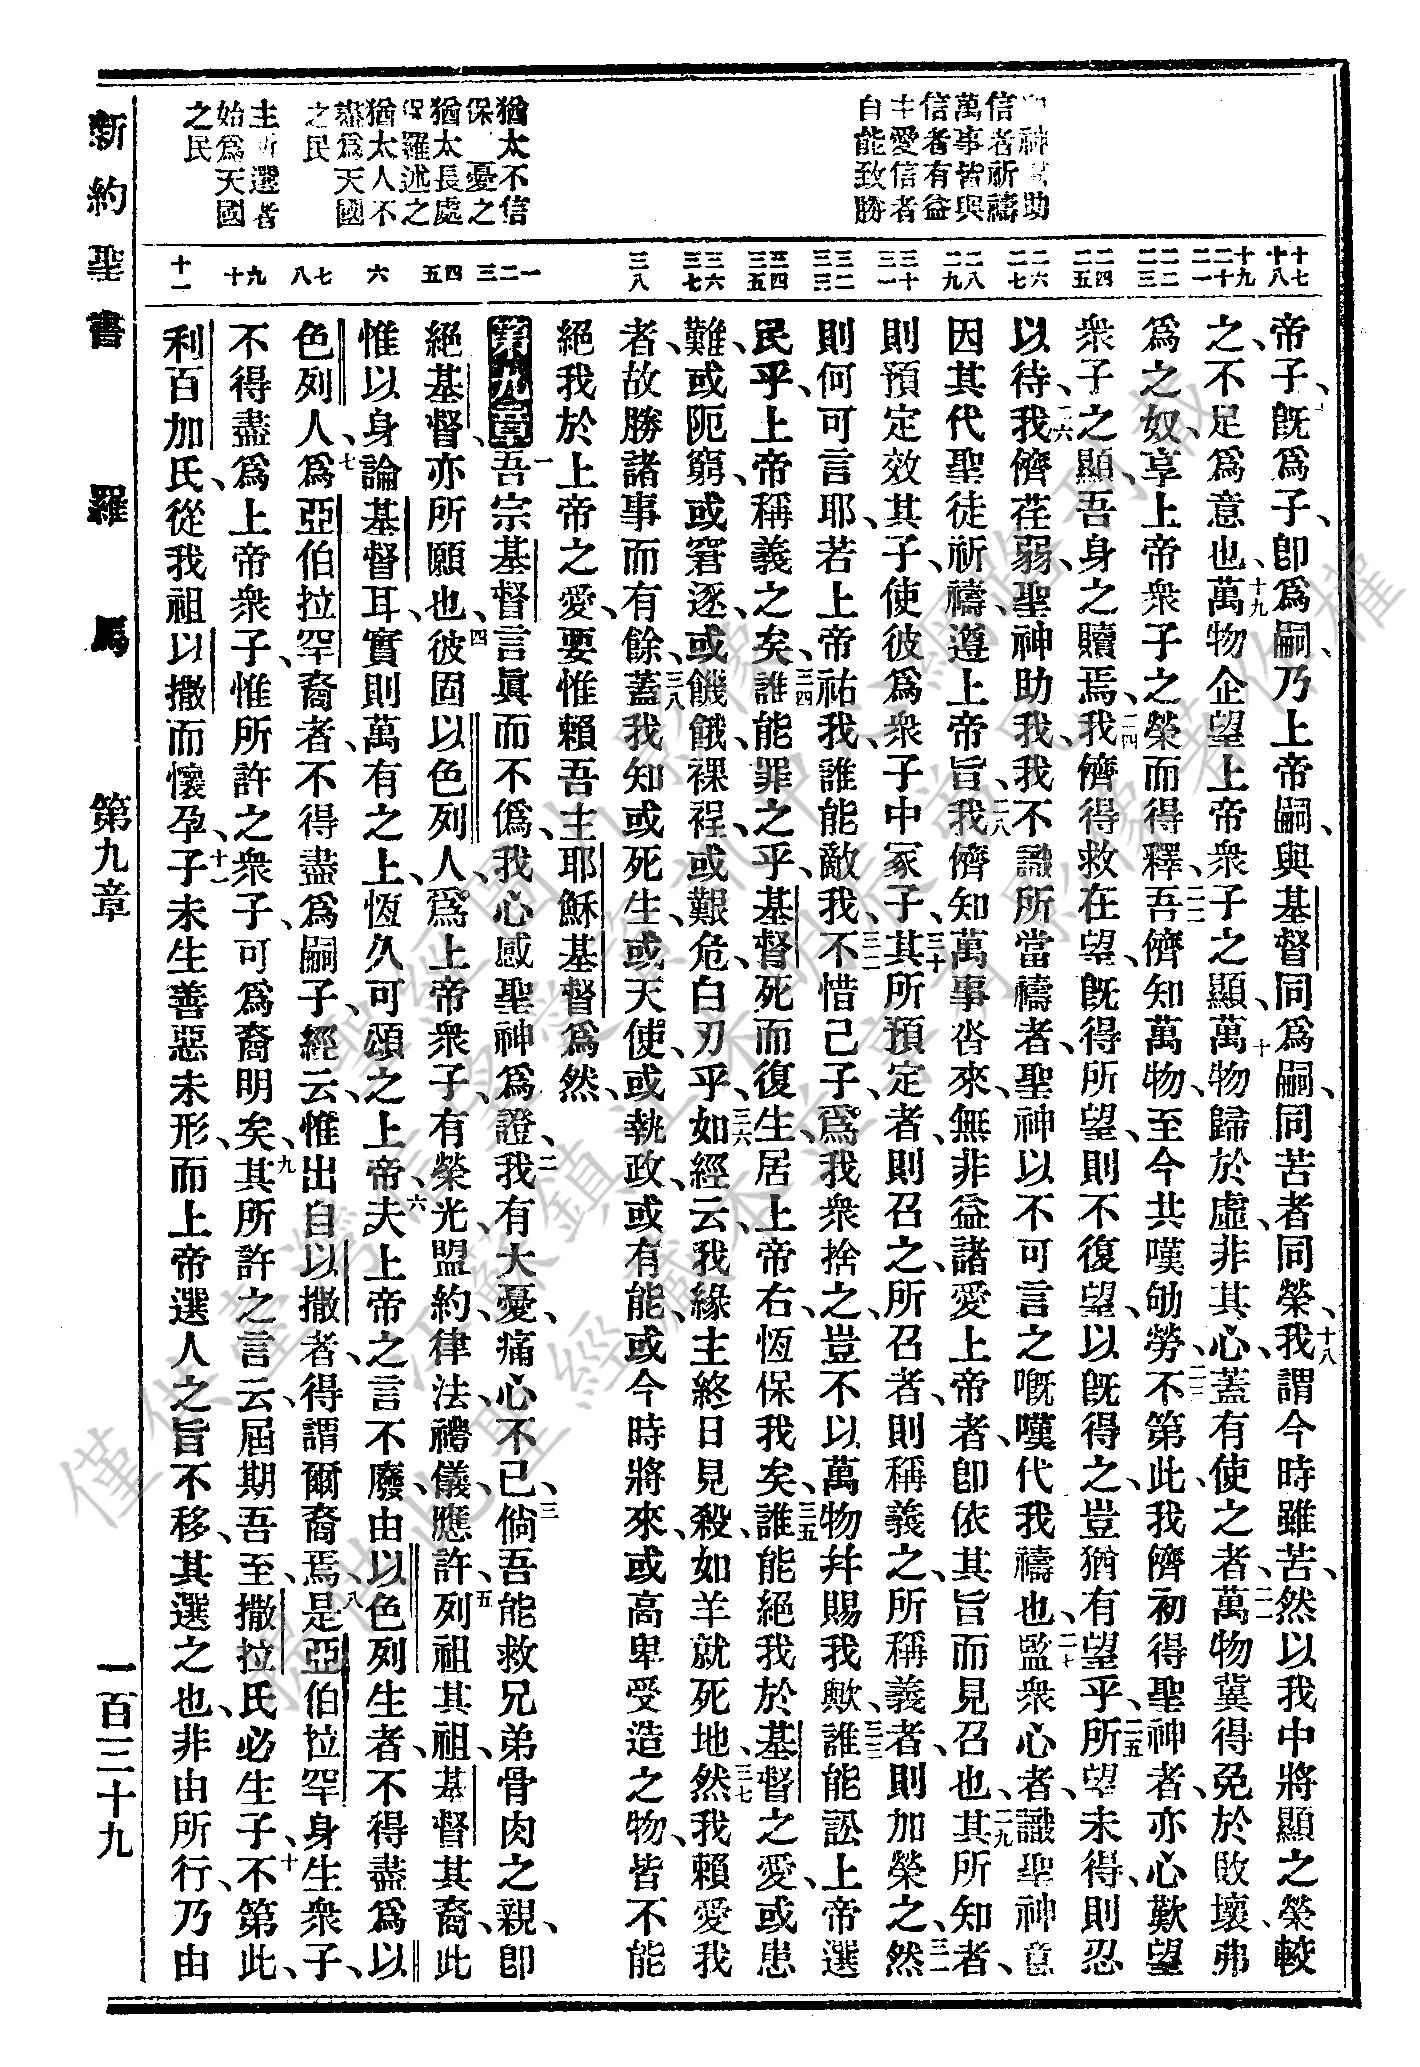 信者祈禱
萬事皆與
信者有益
主愛信者
自能致勝
猶太不信
保 憂之
猶太長處
保羅述之
猶太人不
盡爲天國
之民
主所選者
始爲天國
之民
十七 十八
十九 二十 二一
二二 二三
二四 二五
二六 二七
二八 二九
三十 三一
三二 三三
三四 三五
三六 三七
三八
一 二 三
四 五
六
七 八
九 十
十一
帝子、旣爲子、卽爲嗣、乃上帝嗣、與基督同爲嗣、同苦者同榮、十八我謂今時雖苦、然以我中將顯之榮較
之、不足爲意也、十九萬物企望上帝衆子之顯、二十萬物歸於虛、非其心、蓋有使之者、二一萬物冀得免於敗壞、弗
爲之奴、享上帝衆子之榮而得釋、二二吾儕知萬物、至今共嘆劬勞、二三不第此、我儕初得聖神者、亦心歎望
衆子之顯、吾身之贖焉、二四我儕得救在望、旣得所望、則不復望、以旣得之、豈猶有望乎、二五所望未得、則忍
以待、二六我儕荏弱、聖神助我、我不識所當禱者、聖神以不可言之嘅嘆代我禱也、二七監衆心者、識聖神意、
因其代聖徒祈禱、遵上帝旨、二八我儕知萬事沓來、無非益諸愛上帝者、卽依其旨而見召也、二九其所知者、
則預定效其子、使彼爲衆子中冢子、三十其所預定者、則召之、所召者、則稱義之、所稱義者、則加榮之、三一然
則何可言耶、若上帝祐我、誰能敵我、三二不惜己子、爲我衆捨之、豈不以萬物幷賜我歟、三三誰能訟上帝選
民乎、上帝稱義之矣、三四誰能罪之乎、基督死而復生、居上帝右、恆保我矣、三五誰能絕我於基督之愛、或患
難、或阨窮、或窘逐、或饑餓、裸裎、或艱危、白刃乎、三六如經云、我緣主終日見殺、如羊就死地、三七然我賴愛我
者、故勝諸事而有餘、三八蓋我知或死生、或天使、或執政、或有能、或今時將來、或高卑受造之物、皆不能
絕我於上帝之愛、要惟賴吾主耶穌基督爲然、
第九章一吾宗基督、言眞而不僞、我心感聖神爲證、二我有大憂、痛心不已、三倘吾能救兄弟骨肉之親、卽
絕基督、亦所願也、四彼固以色列人、爲上帝衆子、有榮光、盟約、律法、禮儀、應許、五列祖其祖、基督其裔、此
惟以身論基督耳、實則萬有之上、恆久可頌之上帝、六夫上帝之言不廢、由以色列生者、不得盡爲以
色列人、七爲亞伯拉罕裔者、不得盡爲嗣子、經云、惟出自以撒者、得謂爾裔焉、八是亞伯拉罕身生衆子、
不得盡爲上帝衆子、惟所許之衆子、可爲裔明矣、九其所許之言云、屆期吾至、撒拉氏必生子、十不第此、
利百加氏、從我祖以撒而懷孕、十一子未生、善惡未形、而上帝選人之旨不移、其選之也、非由所行、乃由
新約聖書 羅馬 第九章 一百三十九